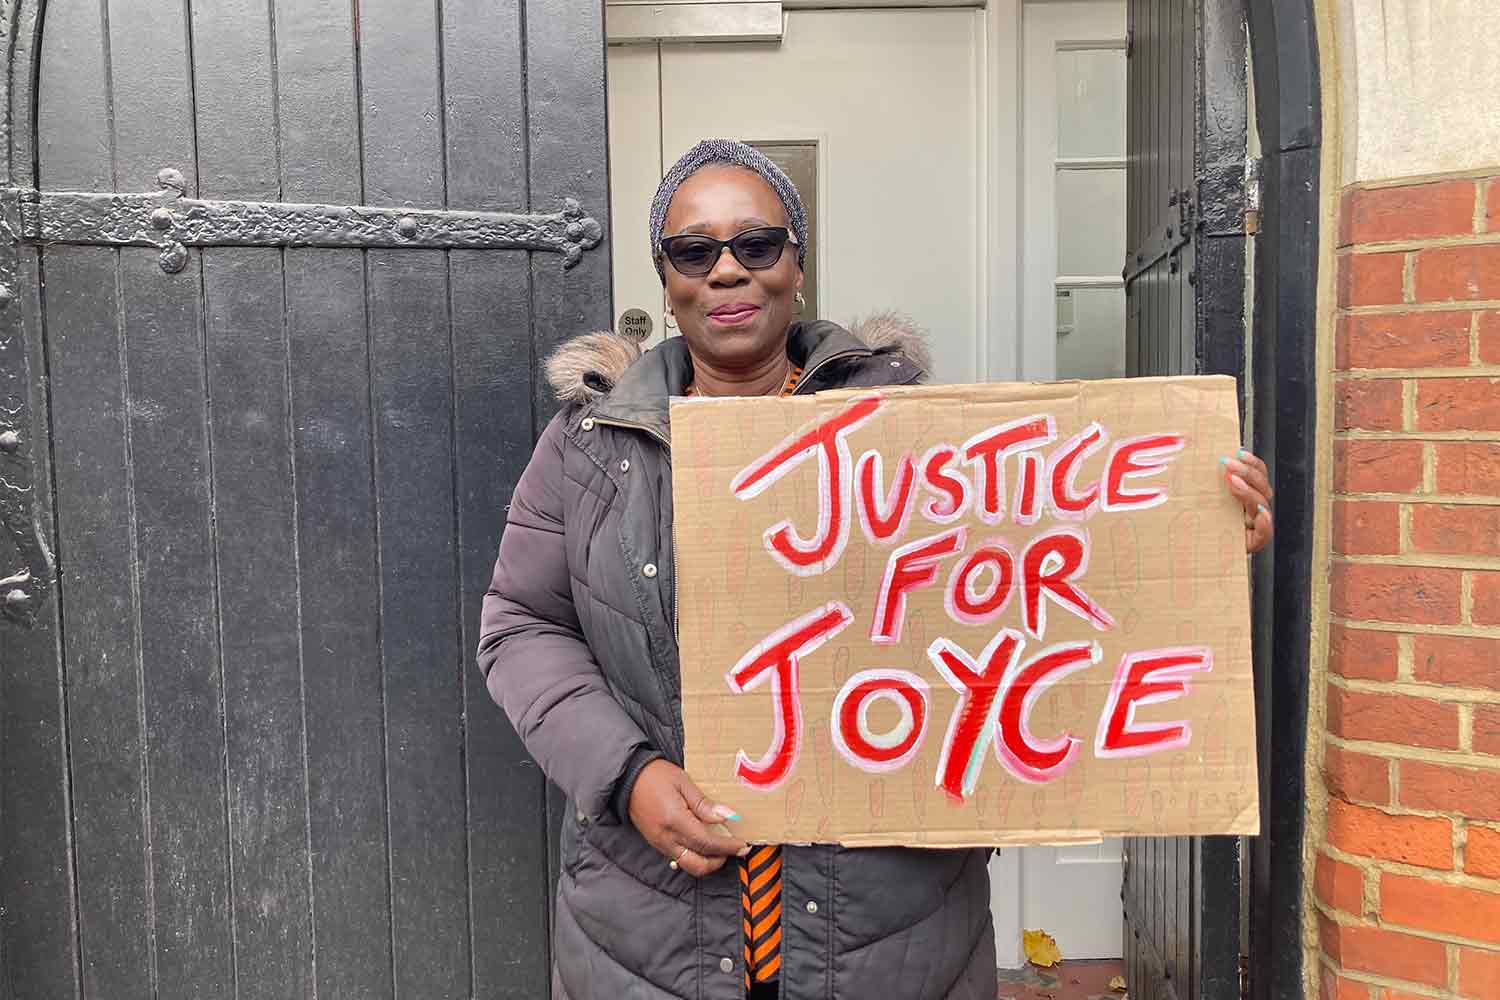 Staff
Only
JUSTICE
FOR
JOYCE